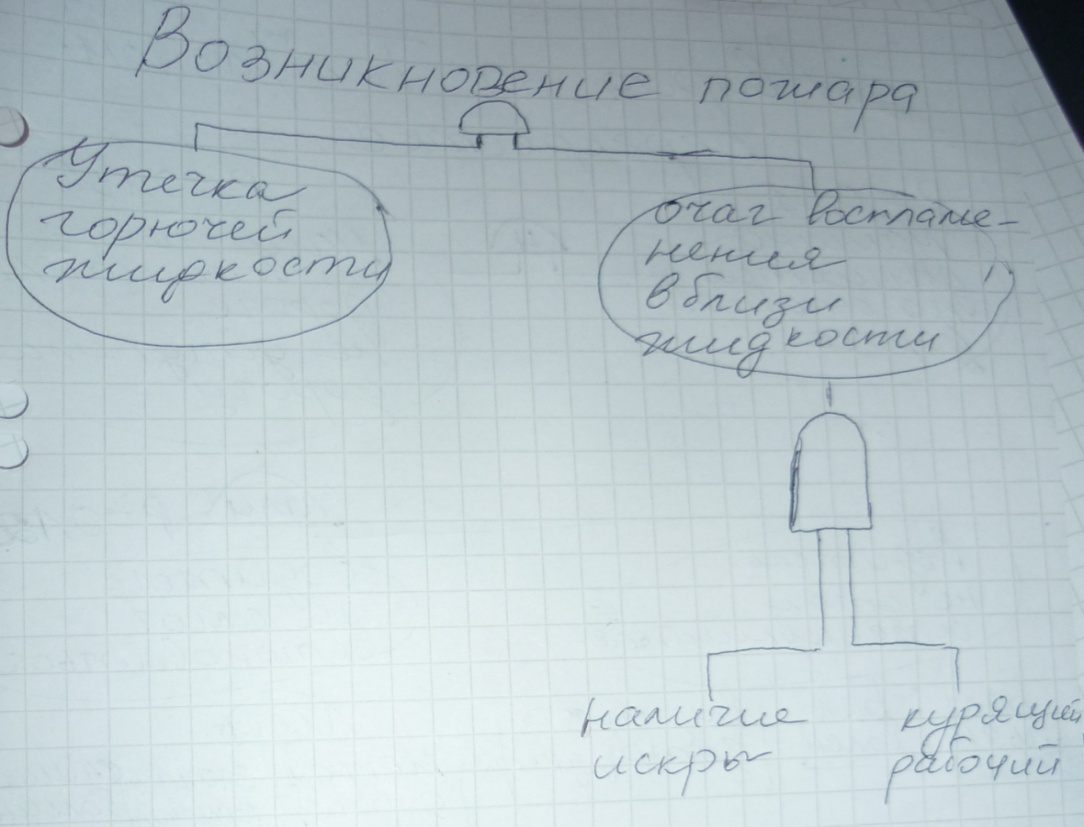 Возникновение пожара
Утечка
горючей
жидкости
очаг воспламе-
нения
вблизи
жидкости
наличие
искры
курящий
рабочий